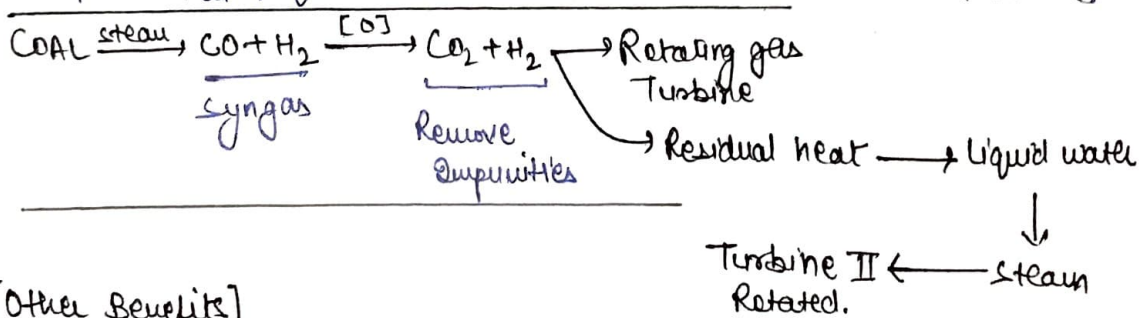 COAL steam → CO + H₂ [O] → CO₂ + H₂ → Rotating gas Turbine
Syngas
Remove Impurities
→ Residual heat → Liquid water
↓
Turbine II ← steam
Rotated.
[Other Benefits]